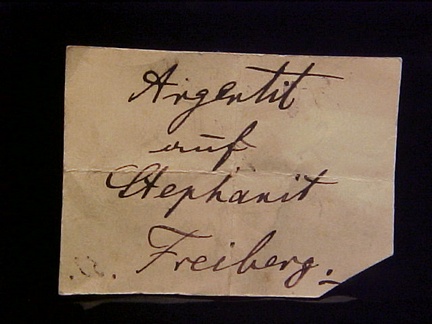 Argentit
auf
Stephanit
Freiberg.